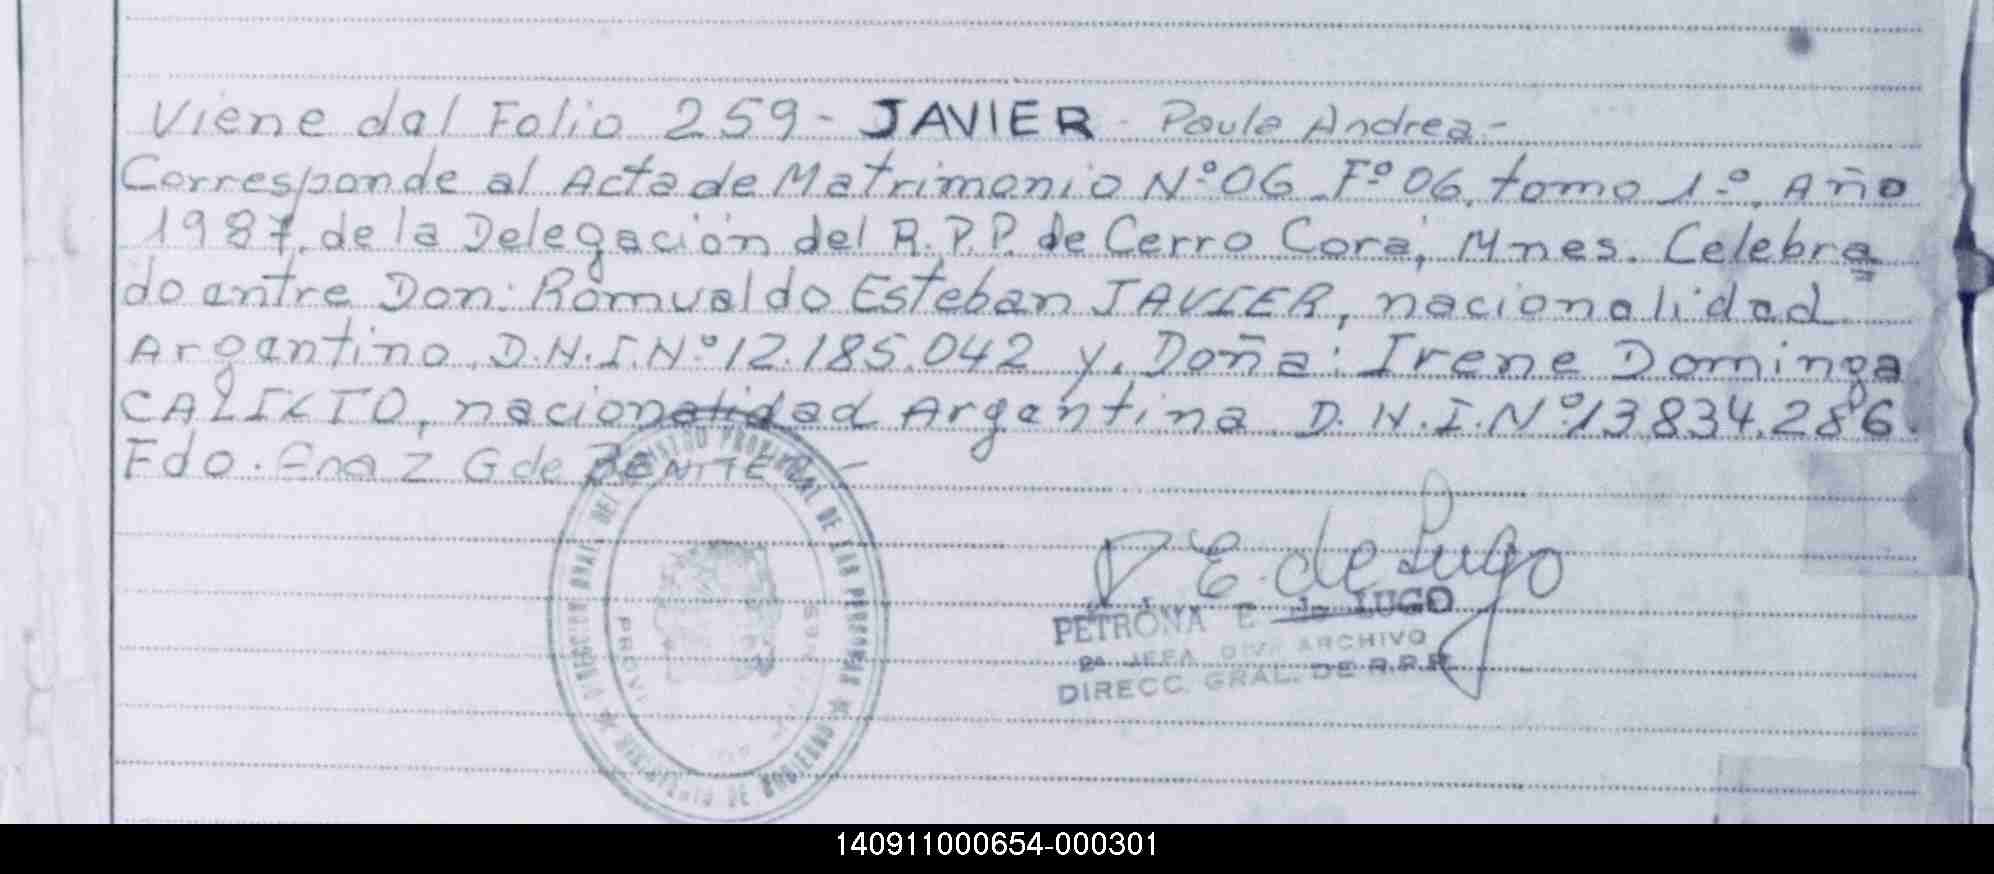 Viene del Folio 259 - JAVIER - Paula Andrea -
Corresponde al Acta de Matrimonio Nº 06 Fº 06, tomo 1º, Año
1987, de la Delegación del R.P.P. de Cerro Corá, Mnes. Celebra
do entre Don: Romualdo Esteban JAVIER, nacionalidad
Argentino, D.N.I. Nº 12.185.042 y, Doña: Irene Dominga
CALIXTO, nacionalidad Argentina D.N.I. Nº 13.834.286.
Fdo. G de BENITE
E. de Lugo
PETRONA E de LUGO
2ª JEFA DIV. ARCHIVO
DIRECC. GRAL. DE R.P.P.
PROVINCIAL DE LAS PERSONAS
DE GOBIERNO
140911000654-000301